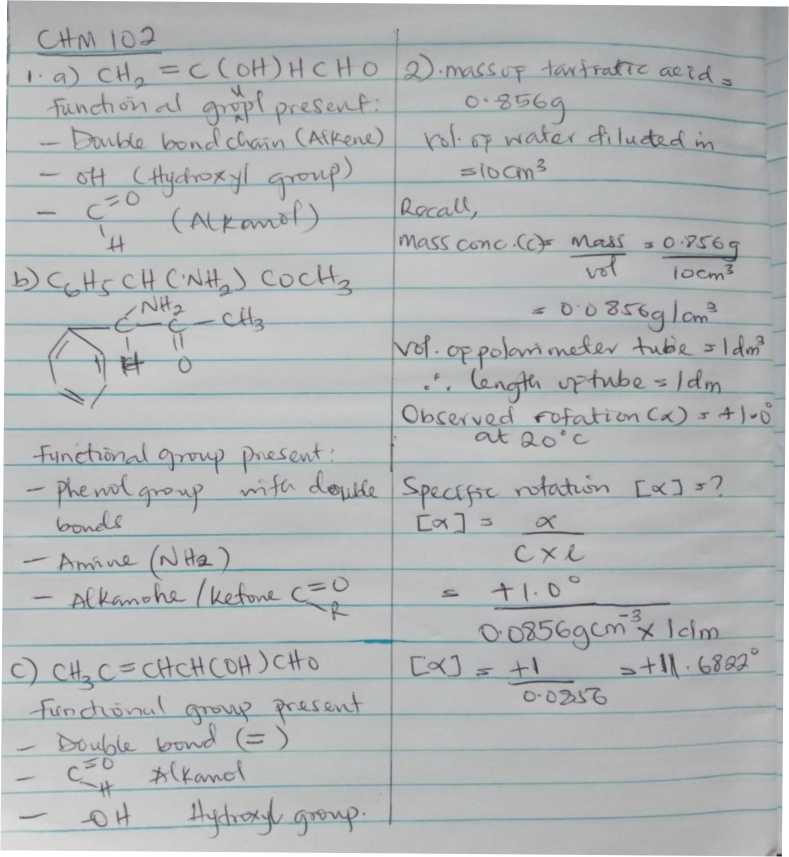 CHM 102
1. a) CH₂ = C(OH)HCHO
functional group present:
- Double bond chain (Alkene)
- OH (Hydroxyl group)
- C=O (Alkanol)
H
b) C₆H₅CH(NH₂)COCH₃
NH₂
C - C - CH₃
H O
functional group present:
- Phenol group with double
bonds
- Amine (NH₂)
- Alkanone / Ketone C=O
R
c) CH₃C=CHCH(OH)CHO
functional group present
- Double bond (=)
- C=O Alkanol
H
- -OH Hydroxyl group.
2). mass of tartratic acid =
0.856g
vol. of water diluted in
=10cm³
Recall,
mass conc.(c)= Mass = 0.856g
vol 10cm³
= 0.0856g/cm³
Vol. of polarimeter tube = 1dm³
∴ length of tube = 1dm
Observed rotation (α) = +1.0°
at 20°C
Specific rotation [α] = ?
[α] = α
C × l
= +1.0°
0.0856gcm⁻³ × 1dm
[α] = +1 = +11.6822°
0.0856